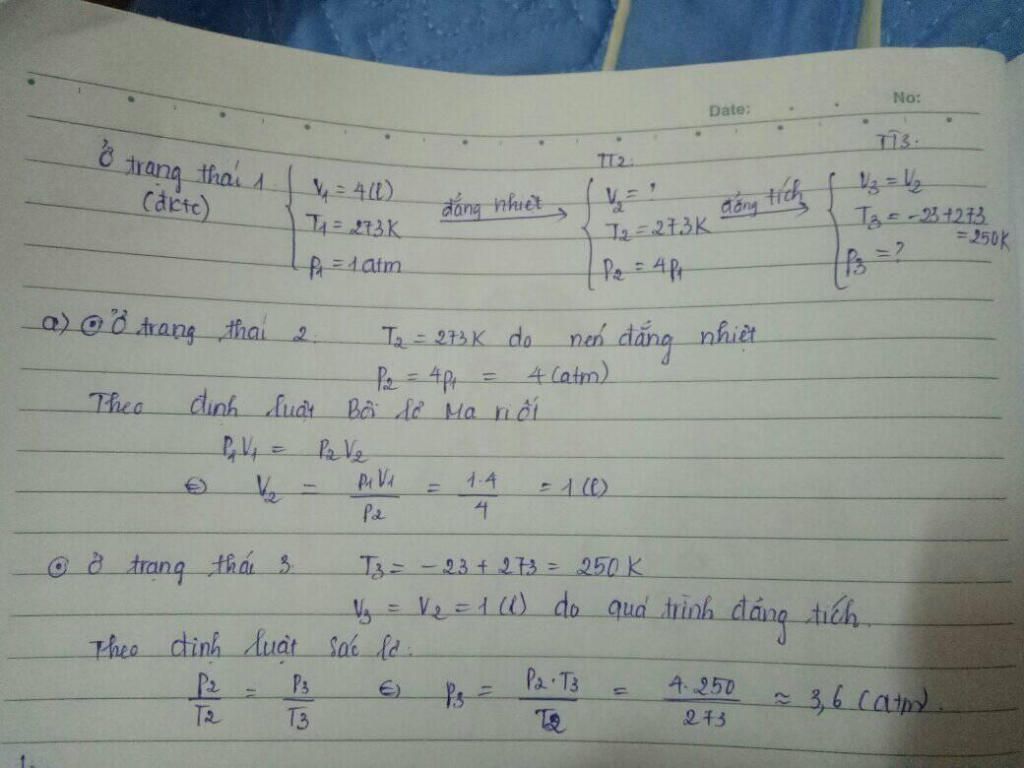 Date: No:
Ở trạng thái 1 (đktc) V₁ = 4(l) T₁ = 273K P₁ = 1 atm
đẳng nhiệt
TT2: V₂ = ? T₂ = 273K P₂ = 4P₁
đẳng tích
TT3. V₃ = V₂ T₃ = -23+273 = 250K P₃ = ?
a) ⊙ Ở trạng thái 2. T₂ = 273K do nén đẳng nhiệt
P₂ = 4P₁ = 4 (atm)
Theo định luật Bôi lơ Ma ri ốt
P₁V₁ = P₂V₂
⇔ V₂ = P₁V₁/P₂ = 1.4/4 = 1 (l)
⊙ Ở trạng thái 3 T₃ = -23 + 273 = 250 K
V₃ = V₂ = 1 (l) do quá trình đẳng tích.
Theo định luật Sác lơ:
P₂/T₂ = P₃/T₃ ⇔ P₃ = P₂.T₃/T₂ = 4.250/273 ≈ 3,6 (atm).